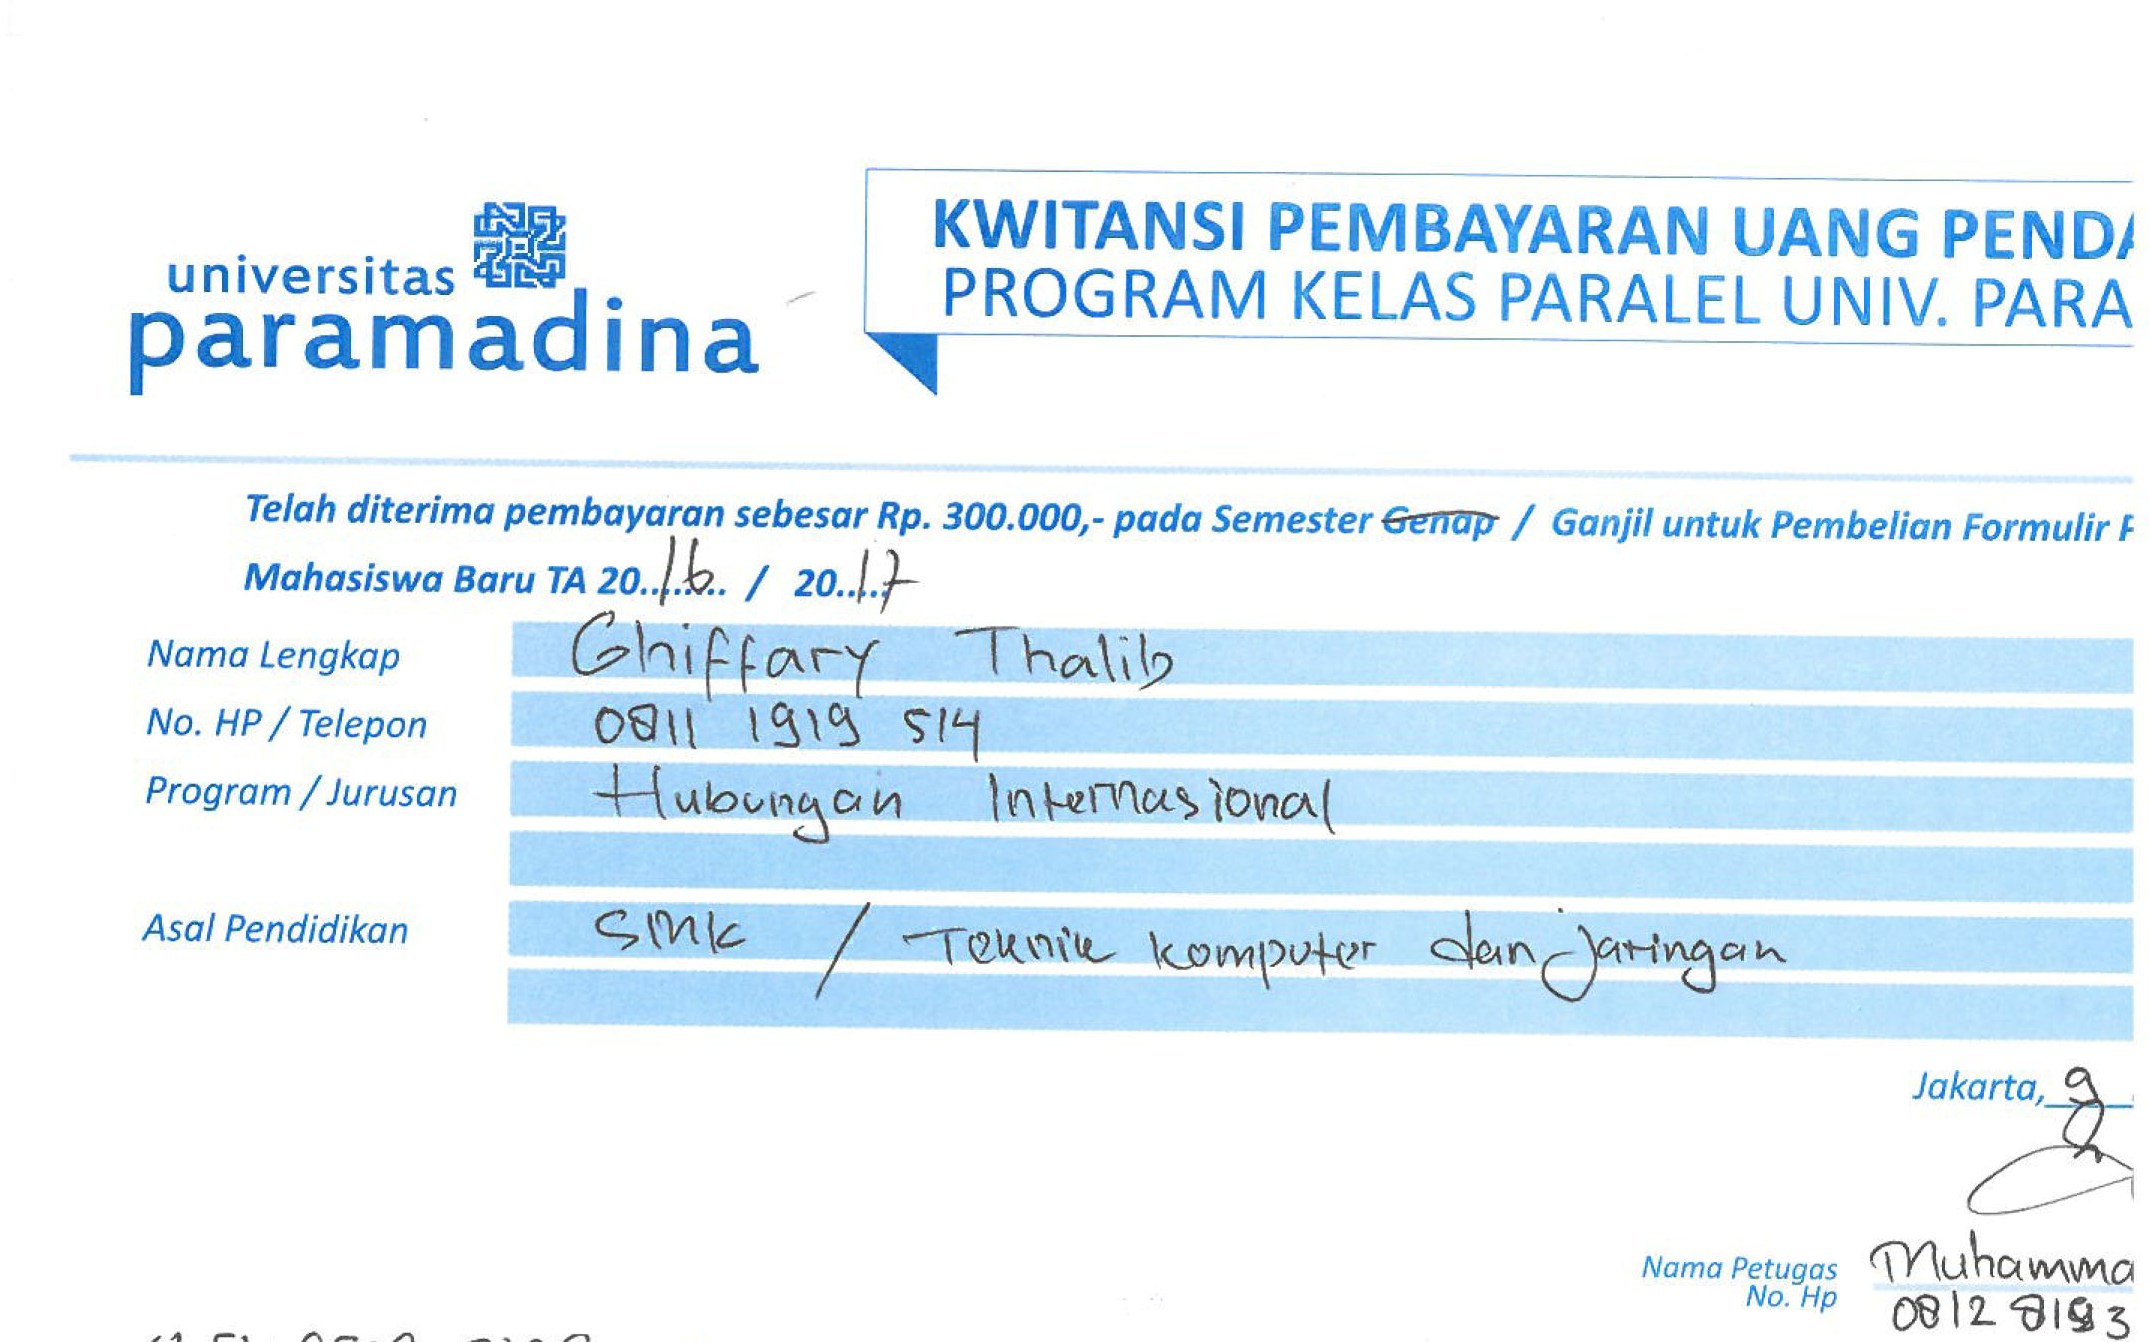 universitas
paramadina
KWITANSI PEMBAYARAN UANG PENDA
PROGRAM KELAS PARALEL UNIV. PARA
Telah diterima pembayaran sebesar Rp. 300.000,- pada Semester Genap / Ganjil untuk Pembelian Formulir P
Mahasiswa Baru TA 20..16.. / 20..17
Nama Lengkap Ghiffary Thalib
No. HP / Telepon 0811 1919 514
Program / Jurusan Hubungan Internasional
Asal Pendidikan SMK / Teknik Komputer dan Jaringan
Jakarta, 9
Nama Petugas Muhamma
No. Hp 0812 8193